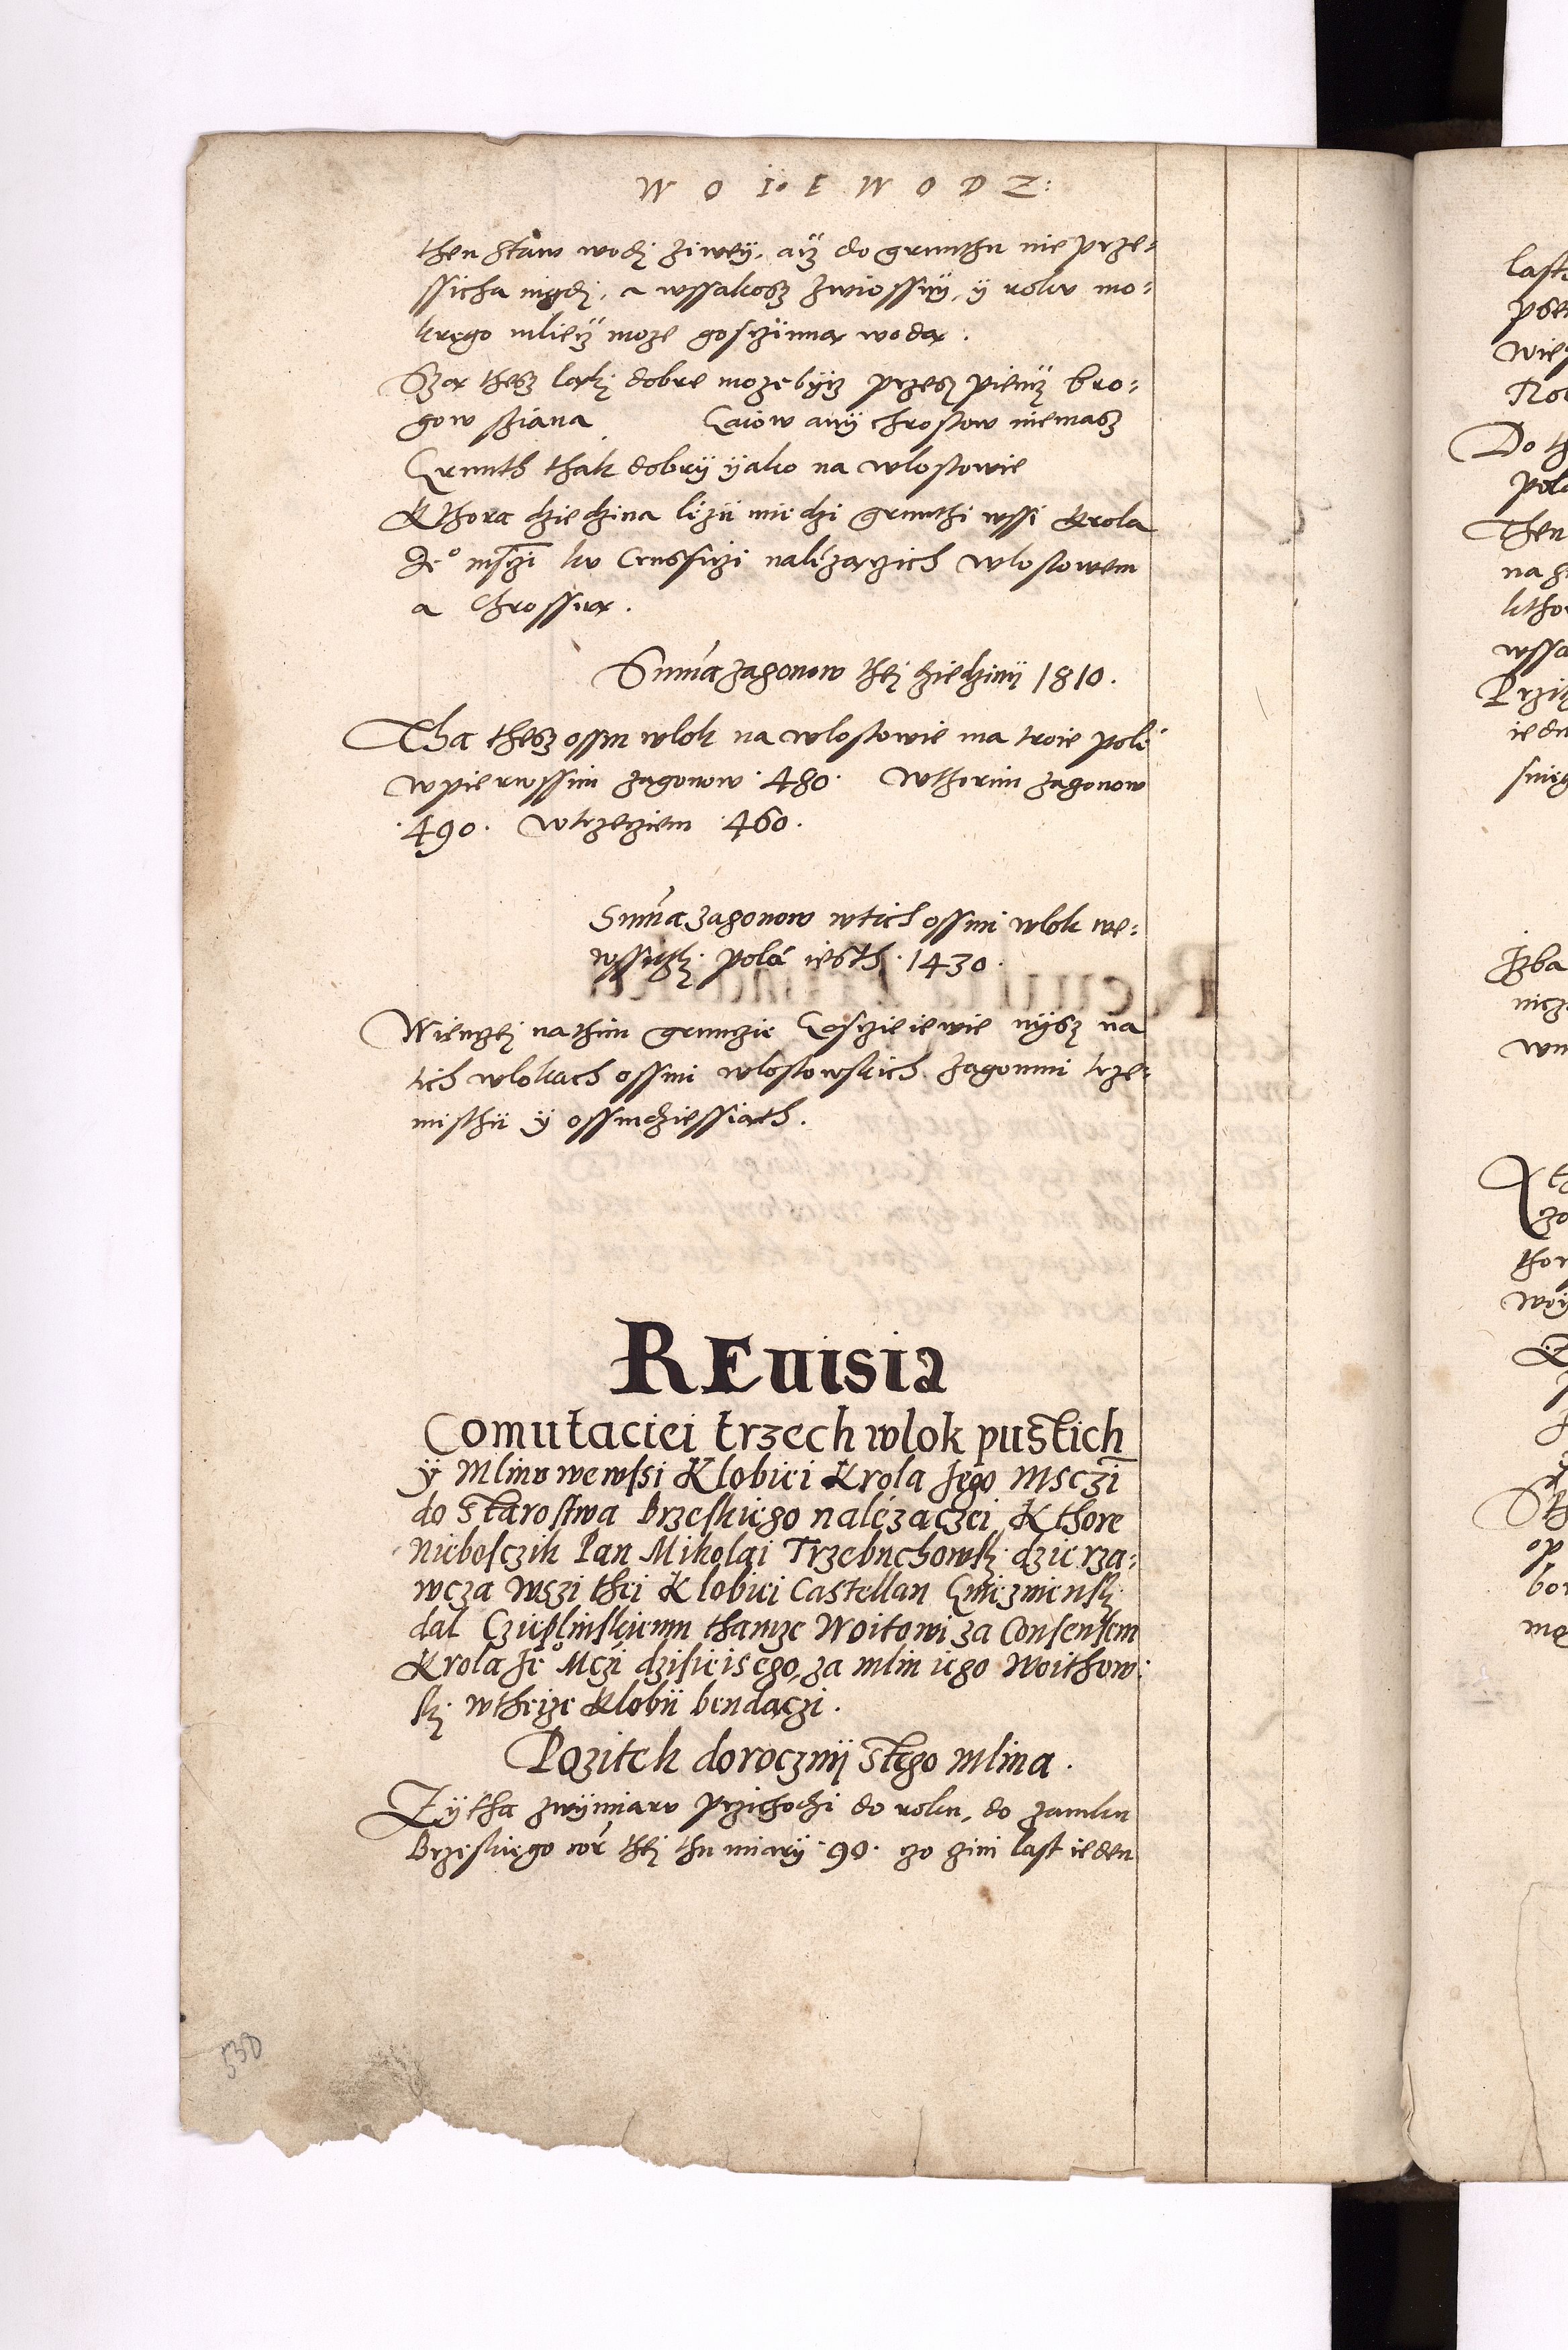 W O I E W O D Z:
then staw wodj ziwey, acz do grunthu nie prze-
ssicha nigdj, a wssakosz zwiossny, y roku mo-
krego mliecz moze gosczinna woda.
Sza thesz lakj dobre moze bycz przesz piencz bro-
gow sziana Gaiow any chrostow niemasz
Grunth thak dobry yako na wlostowie
Kthora dziedzina lezy miedzi grunthi wssi Krola
Je° msczi ku Crussfici nalezaczich wlostowem
a Chrossna.
Summa zagonow thej dziedziny 1810.
Tha thesz ossm wlok na wlostowie ma troie pole
w pierwssim zagonow 480. W thorim zagonow
490. W trzeciem 460.
Summa zagonow w tich ossmi wlok we-
wssitkj pola iesth 1430.
Wienczej na thim gruncie Gosczieiewie nysz na
tich wlokach ossmi wlostowskich zagonmi trze-
misthy y ossmdziessiath.
REuisia
Comutaciei trzech wlok pustich
y Mlinu we wssi Klobici Krola Jego Msczi
do Starostwa Brzeskiego nalezaczei Kthore
Nieboszik Pan Mikolai Trzebuchowskj dzierza-
wcza wszi thei Klobici Castellan Gnieznienskj
dal Czieplinskiemu thamze Woitowi za Consensem
Krola Je° Mczi dzisieisego, za mlin iego Woithow-
skj w theize Klobi bendaczi.
Pozitek doroczny s tego mlina.
Zytha z wymiaru przichodzi do roku, do zamku
Brzeskiego cor thej thu miary 90. czo czini last ieden
530